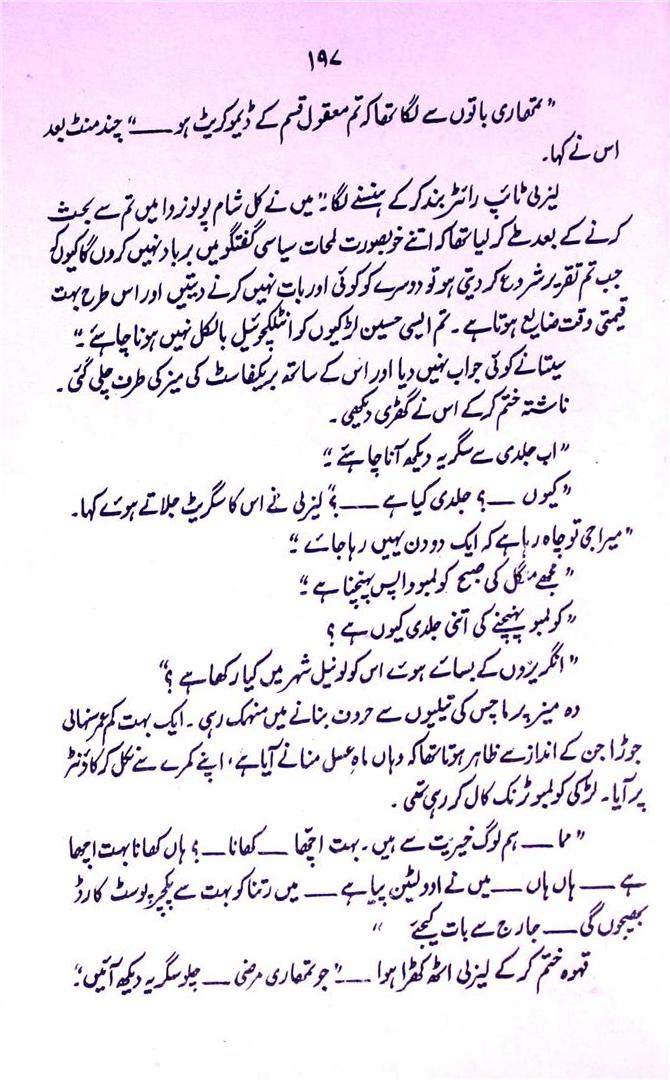 ۱۹۷
"تمھاری باتوں سے لگا تھا کہ تم معقول قسم کے ڈیموکریٹ ہو ——" چند منٹ بعد
اس نے کہا۔
لیزلی ٹائپ رائٹر بند کر کے ہنسنے لگا۔ "میں نے کل شام پولوزوا میں تم سے بحث
کرنے کے بعد طے کر لیا تھا کہ اتنے خوبصورت لمحات سیاسی گفتگو میں برباد نہیں کروں گا کیوں کہ
جب تم تقریر شروع کر دیتی ہو تو دوسرے کو کوئی اور بات نہیں کرنے دیتیں اور اس طرح بہت
قیمتی وقت ضایع ہوتا ہے۔ تم ایسی حسین لڑکیوں کو انٹلکچوئیل بالکل نہیں ہونا چاہئے۔"
سیتا نے کوئی جواب نہیں دیا اور اس کے ساتھ بریکفاسٹ کی میز کی طرف چلی گئی۔
ناشتہ ختم کر کے اس نے گھڑی دیکھی۔
"اب جلدی سے سگریہ دیکھ آنا چاہئے۔"
"کیوں ——؟ جلدی کیا ہے ——؟" لیزلی نے اس کا سگریٹ جلاتے ہوئے کہا۔
"میرا جی تو چاہ رہا ہے کہ ایک دو دن یہیں رہا جائے۔"
"مجھے منگل کی صبح کولمبو واپس پہنچنا ہے۔"
"کولمبو پہنچنے کی اتنی جلدی کیوں ہے؟
"انگریزوں کے بسائے ہوئے اس کولونیل شہر میں کیا رکھا ہے؟"
وہ میز پر ماچس کی تیلیوں سے حروف بنانے میں منہمک رہی۔ ایک بہت کم عمر سنہالی
جوڑا جن کے انداز سے ظاہر ہوتا تھا کہ وہاں ماہِ عسل منانے آیا ہے، اپنے کمرے سے نکل کر کاؤنٹر
پر آیا۔ لڑکی کولمبو ٹرنک کال کر رہی تھی۔
"مما —— ہم لوگ خیریت سے ہیں۔ بہت اچّھا —— کھانا ——؟ ہاں کھانا بہت اچھا
ہے —— ہاں ہاں —— میں نے اوولٹین پیا ہے —— میں رتنا کو بہت سے پکچر پوسٹ کارڈ
بھیجوں گی —— جارج سے بات کیجئے "
قہوہ ختم کر کے لیزلی اٹھ کھڑا ہوا —— "جو تمھاری مرضی —— چلو سگریہ دیکھ آئیں۔"